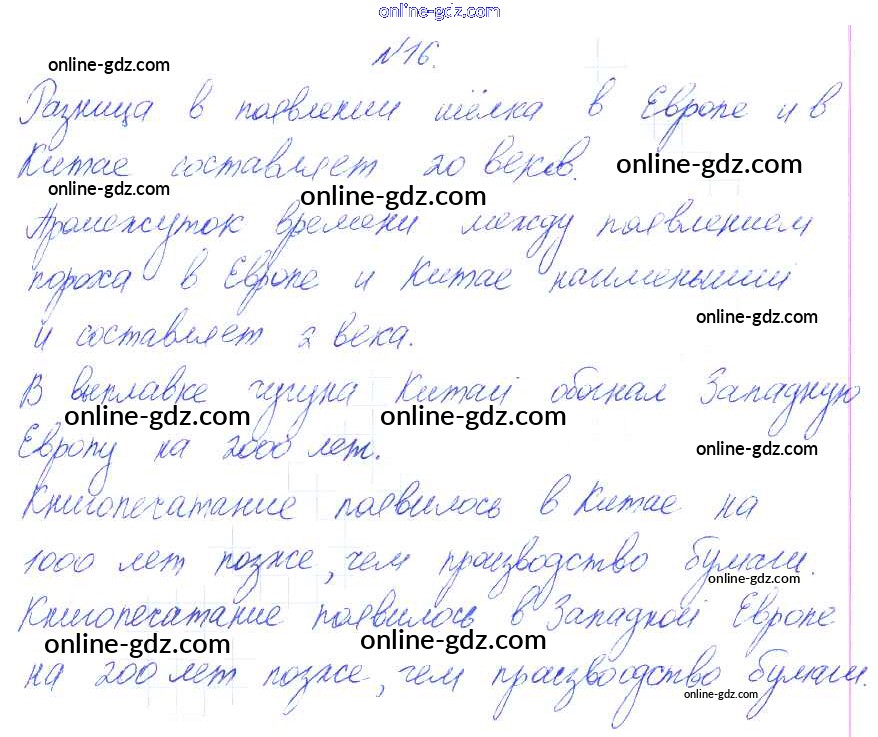 online-gdz.com
№16.
online-gdz.com
online-gdz.com
Разница в появлении шёлка в Европе и в
Китае составляет 20 веков. online-gdz.com
online-gdz.com
online-gdz.com
online-gdz.com
Промежуток времени между появлением
пороха в Европе и Китае наименьший
online-gdz.com
и составляет 2 века.
В выплавке чугуна Китай обогнал Западную
online-gdz.com online-gdz.com
Европу на 2000 лет. online-gdz.com
Книгопечатание появилось в Китае на
1000 лет позже, чем производство бумаги.
online-gdz.com
Книгопечатание появилось в Западной Европе
online-gdz.com online-gdz.com
на 200 лет позже, чем производство бумаги.
online-gdz.com